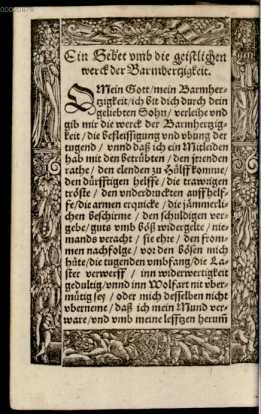 Ein Gebet vmb die geistlichen
werck der Barmhertzigkeit.
O Mein Gott/mein Barmher-
tzigkeit/ich bit dich durch dein
geliebten Sohn/verleihe vnd
gib mir die werck der Barmhertzig-
keit/die befleissigung vnd vbung der
tugend/vnnd daß ich ein Mitleiden
hab mit den betrübten/den jrrenden
rathe/den elenden zu Hülff komme,
den dürfftigen helffe/die trawrigen
tröste/den vnderdruckten auff helf-
fe/die armen erquicke/die jämmerli-
chen beschirme/den schuldigen ver-
gebe/guts vmb böß widergelte/nie-
mands veracht/sie ehre/den from-
men nachfolge/vor den bösen mich
hüte/die tugenden vmbfang/die La-
ster verwerff/inn widerwertigkeit
gedultig/vnnd inn Wolfart nit vber-
mütig sey/oder mich desselben nicht
vberneme/daß ich mein Mund ver-
ware/vnd vmb meine leffzen herum